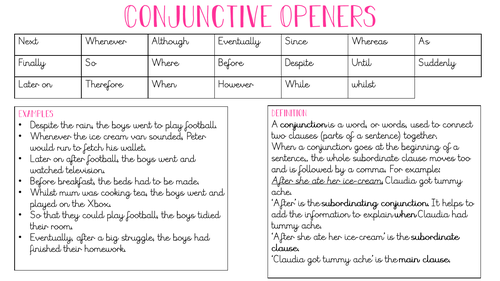 CONJUNCTIVE OPENERS
Next Whenever Although Eventually Since Whereas As
Finally So Where Before Despite Until Suddenly
Later on Therefore When However While whilst
EXAMPLES
• Despite the rain, the boys went to play football.
• Whenever the ice cream van sounded, Peter
would run to fetch his wallet.
• Later on after football, the boys went and
watched television.
• Before breakfast, the beds had to be made.
• Whilst mum was cooking tea, the boys went and
played on the Xbox.
• So that they could play football, the boys tidied
their room.
• Eventually, after a big struggle, the boys had
finished their homework.
DEFINITION
A conjunction is a word, or words, used to connect
two clauses (parts of a sentence) together.
When a conjunction goes at the beginning of a
sentence, the whole subordinate clause moves too
and is followed by a comma. For example:
After she ate her ice-cream, Claudia got tummy
ache.
'After' is the subordinating conjunction. It helps to
add the information to explain when Claudia had
tummy ache.
'After she ate her ice-cream' is the subordinate
clause.
'Claudia got tummy ache' is the main clause.